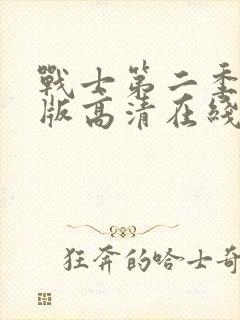 戰士第二季
版高清在綫
狂奔的哈士奇